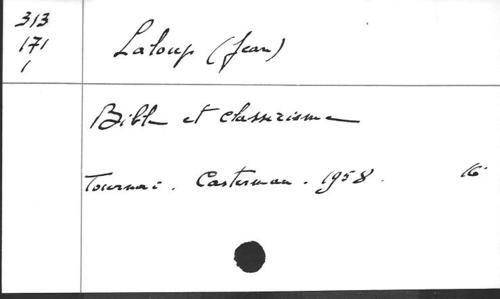 313
171
1
Laloup (Jean)
Bible et classicisme
Tournai. Casterman. 1958. 16°